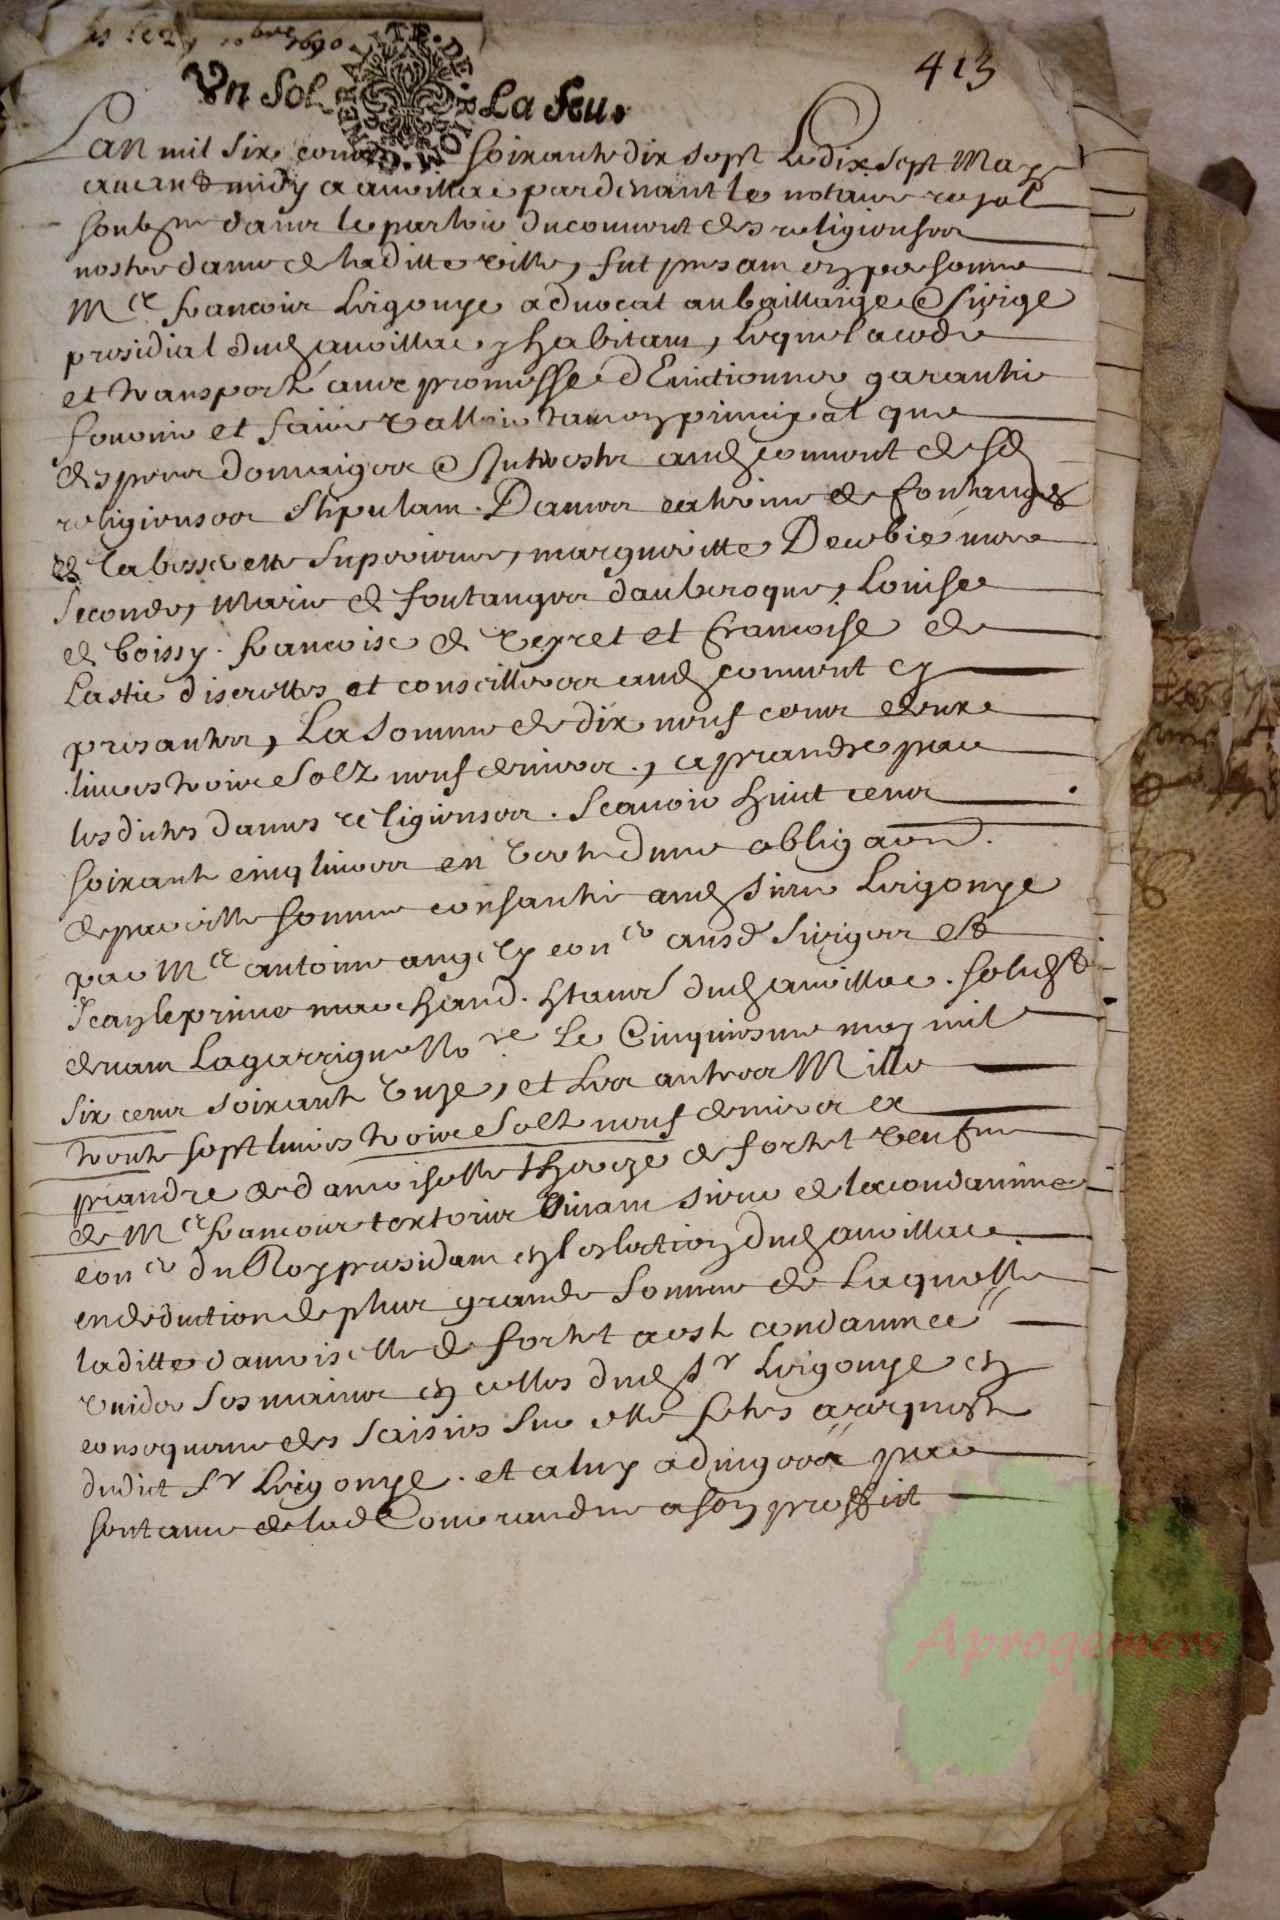 413
Un Sol La feu.
GENERALITE DE RIOM
Lan mil six cens soixante dix sept Le dix sept May
avant midy a aurillac par devant le notaire royal
soubsne dans le parloir du couvent des religieuses
nostre dame de laditte ville, fut presant en personne
Me francois Lrigonye advocat au bailliaige & siege
presidial dud aurillac y habitant, lequel a cede
et transporté avec promesse d'Evictionner garantir
fournir et faire valloir tant en principal que
despens domaiges & Interestz aud couvent desd
religieuses stipulant Dames catherine de fontanges
de la bessevette superieure, margueritte Decebié mere
seconde, Marie de fontanges dauberoque, Louise
de boissy francoise de veyret et francoise de
Lastic discrettes et conseilleres aud couvent cy
presantes, La somme de dix neuf cens deux
livres troise solz neuf deniers, a prandre par
lesdittes dames religieuses. Scavoir huit cens
soixante cinq livres en vertu dune obligaon
de pareille somme consantie aud sieur Lrigonye
par Me antoine angely coner ausd sieiges et
Jean leprince marchand. htans dud aurillac. solidt
devant Lagarrigue Nore Le Cinquiesme may mil
six cens soixante unze, et les autres Mille
trente sept livres troise solz neuf deniers a
prandre de damoiselle de fortet veufve
de Me francois textoris vivant sieur de lacondamine
coner du Roy presidant en leslection dud aurillac
en deduction de plus grande somme de Laquelle
laditte damoiselle de fortet a est condamnee
vuider ses mains en celles dud sr Lrigonye en
consequence des saisies sur elle fetes a requeste
dudict sr Lrigonye. et a luy adiugées par
sentance de lad Cour randue a son proffit
Aprogemere